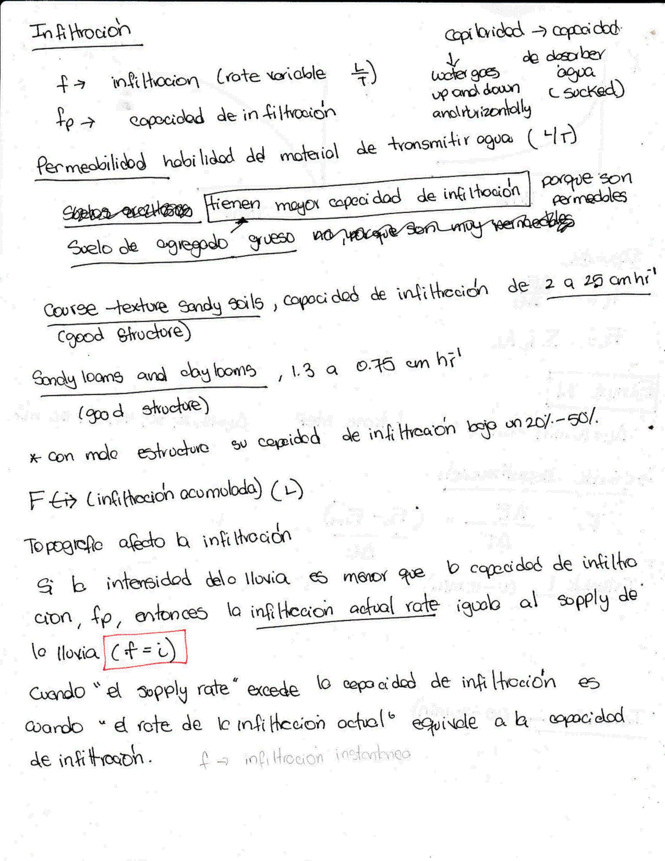 Infiltración
capilaridad → capacidad
↓ de absorber
water goes agua
up and down (sucked)
and horizontally
f → infiltracion (rate variable L/T)
fp → capacidad de infiltración
Permeabilidad habilidad del material de transmitir agua (L/T)
tienen mayor capacidad de infiltración porque son
permeables
Suelo de agregado grueso no, porque son muy permeables
Course-texture sandy soils, capacidad de infiltración de 2 a 25 cm hr⁻¹
(good structure)
Sandy loams and clay loams, 1.3 a 0.75 cm hr⁻¹
(good structure)
* con mala estructura su capacidad de infiltración baja un 20%-50%.
F → (infiltración acumulada) (L)
Topografia afecta la infiltración
Si la intensidad de la lluvia es menor que la capacidad de infiltra
cion, fp, entonces la infiltracion actual rate iguala al supply de
la lluvia (f = i)
Cuando "el supply rate" excede la capacidad de infiltración es
cuando "el rate de la infiltracion actual" equivale a la capacidad
de infiltración. f → infiltración instantanea